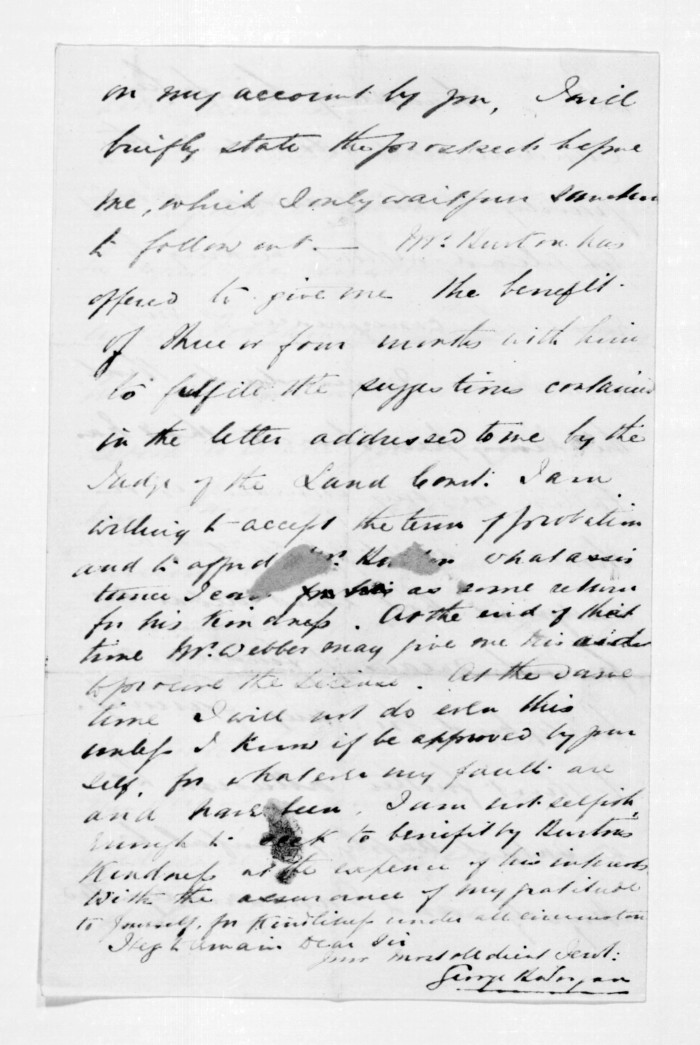 on my account by you, I will
briefly state the prospects before
me, which I only wait your sanction
to follow out — Mr. Burton has
offered to give me the benefit
of three or four months with him
to fulfill the suggestions contained
in the letter addressed to me by the
Judge of the Land Court. I am
willing to accept the term of probation
and to afford Mr. what assis
tance I can as some return
for his kindness. At the end of that
time Mr. Webber may give me his
to procure the License. At the same
time I will not do even this
unless I know it be approved by your
self, for whatever my faults are
and have been, I am not selfish
enough to seek to benefit by Burton's
kindness at the expence of his interests
With the assurance of my gratitude
to yourself, for kindliness under all circumstan
I beg to remain Dear Sir
Your most obedient Servt:
George